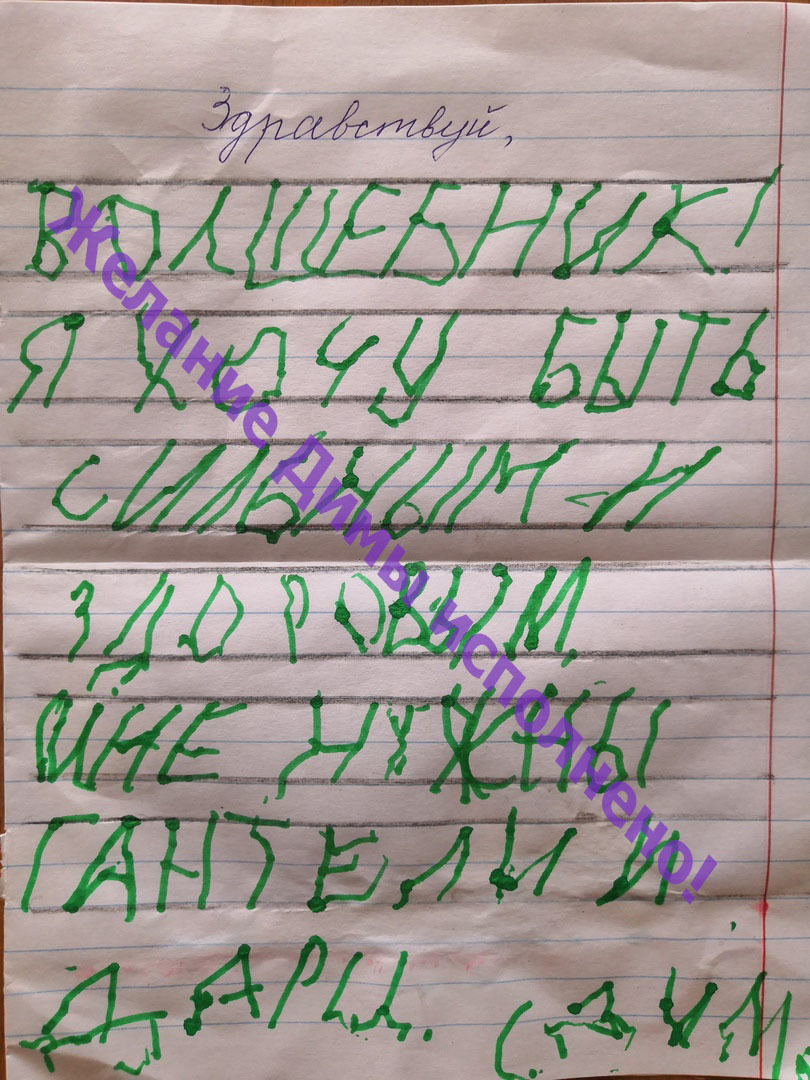 Здравствуй,
ВОЛШЕБНИК!
Я ХОЧУ БЫТЬ
СИЛЬНЫМ И
ЗДОРОВЫМ.
МНЕ НУЖНЫ
ГАНТЕЛИ И
ДАРЦ. (ДИМ
Желание Димы исполнено!